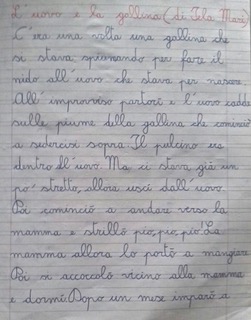 L'uovo e la gallina (di Iela Mari)
C'era una volta una gallina che
si stava spiumando per fare il
nido all'uovo che stava per nascere
All'improvviso partorì e l'uovo cadde
sulle piume della gallina che cominciò
a sedercisi sopra. Il pulcino era
dentro l'uovo. Ma ci stava già un
po' stretto, allora uscì dall'uovo
Poi cominciò a andare verso la
mamma e strillò pio, pio, pio. La
mamma allora lo portò a mangiare
Poi si accoccolò vicino alla mamma
e dormì. Dopo un mese imparò a